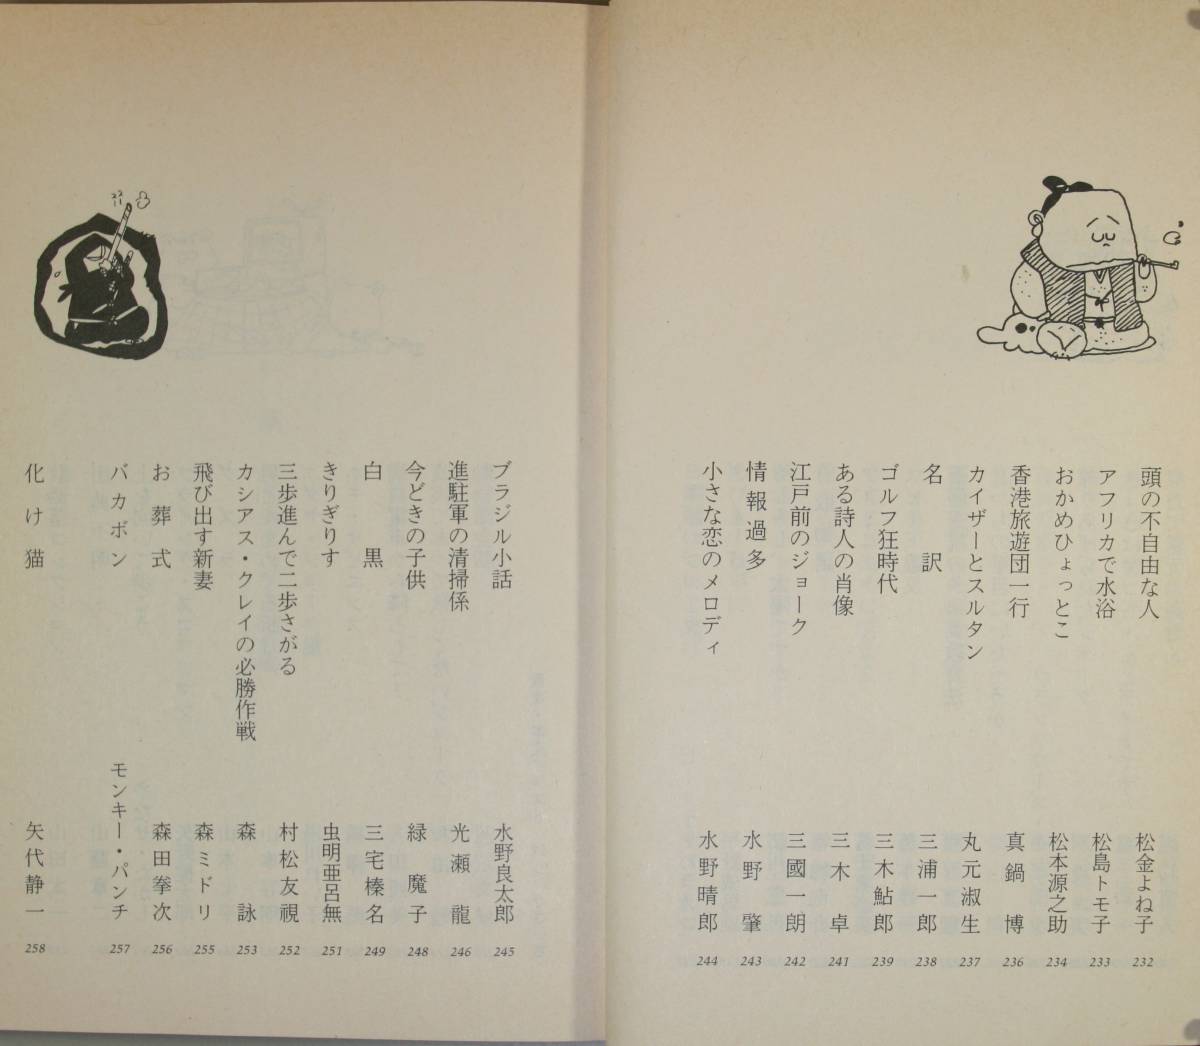 頭の不自由な人 松金よね子 232
アフリカで水浴 松島トモ子 233
おかめひょっとこ 松本源之助 234
香港旅遊団一行 真鍋博 236
カイザーとスルタン 丸元淑生 237
名訳 三浦一郎 238
ゴルフ狂時代 三木鮎郎 239
ある詩人の肖像 三木卓 241
江戸前のジョーク 三國一朗 242
情報過多 水野肇 243
小さな恋のメロディ 水野晴郎 244
ブラジル小話 水野良太郎 245
進駐軍の清掃係 光瀬龍 246
今どきの子供 緑魔子 248
白黒 三宅榛名 249
きりぎりす 虫明亜呂無 251
三歩進んで二歩さがる 村松友視 252
カシアス・クレイの必勝作戦 森詠 253
飛び出す新妻 森ミドリ 255
お葬式 森田拳次 256
バカボン モンキー・パンチ 257
化け猫 矢代静一 258